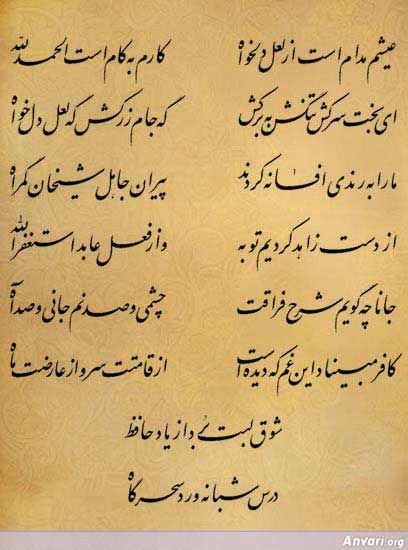 عیشم مدام است از لعل دلخواه کارم به کام است الحمدلله
ای بخت سرکش تنگش به بر کش گه جام زر کش گه لعل دل خواه
ما را به رندی افسانه کردند پیران جاهل شیخان گمراه
از دست زاهد کردیم توبه و از فعل عابد استغفرالله
جانا چه گویم شرح فراقت چشمی و صد نم جانی و صد آه
کافر مبیناد این غم که دیده است از قامتت سرو از عارضت ماه
شوق لبت برد از یاد حافظ
درس شبانه ورد سحرگاه
Anvari.org